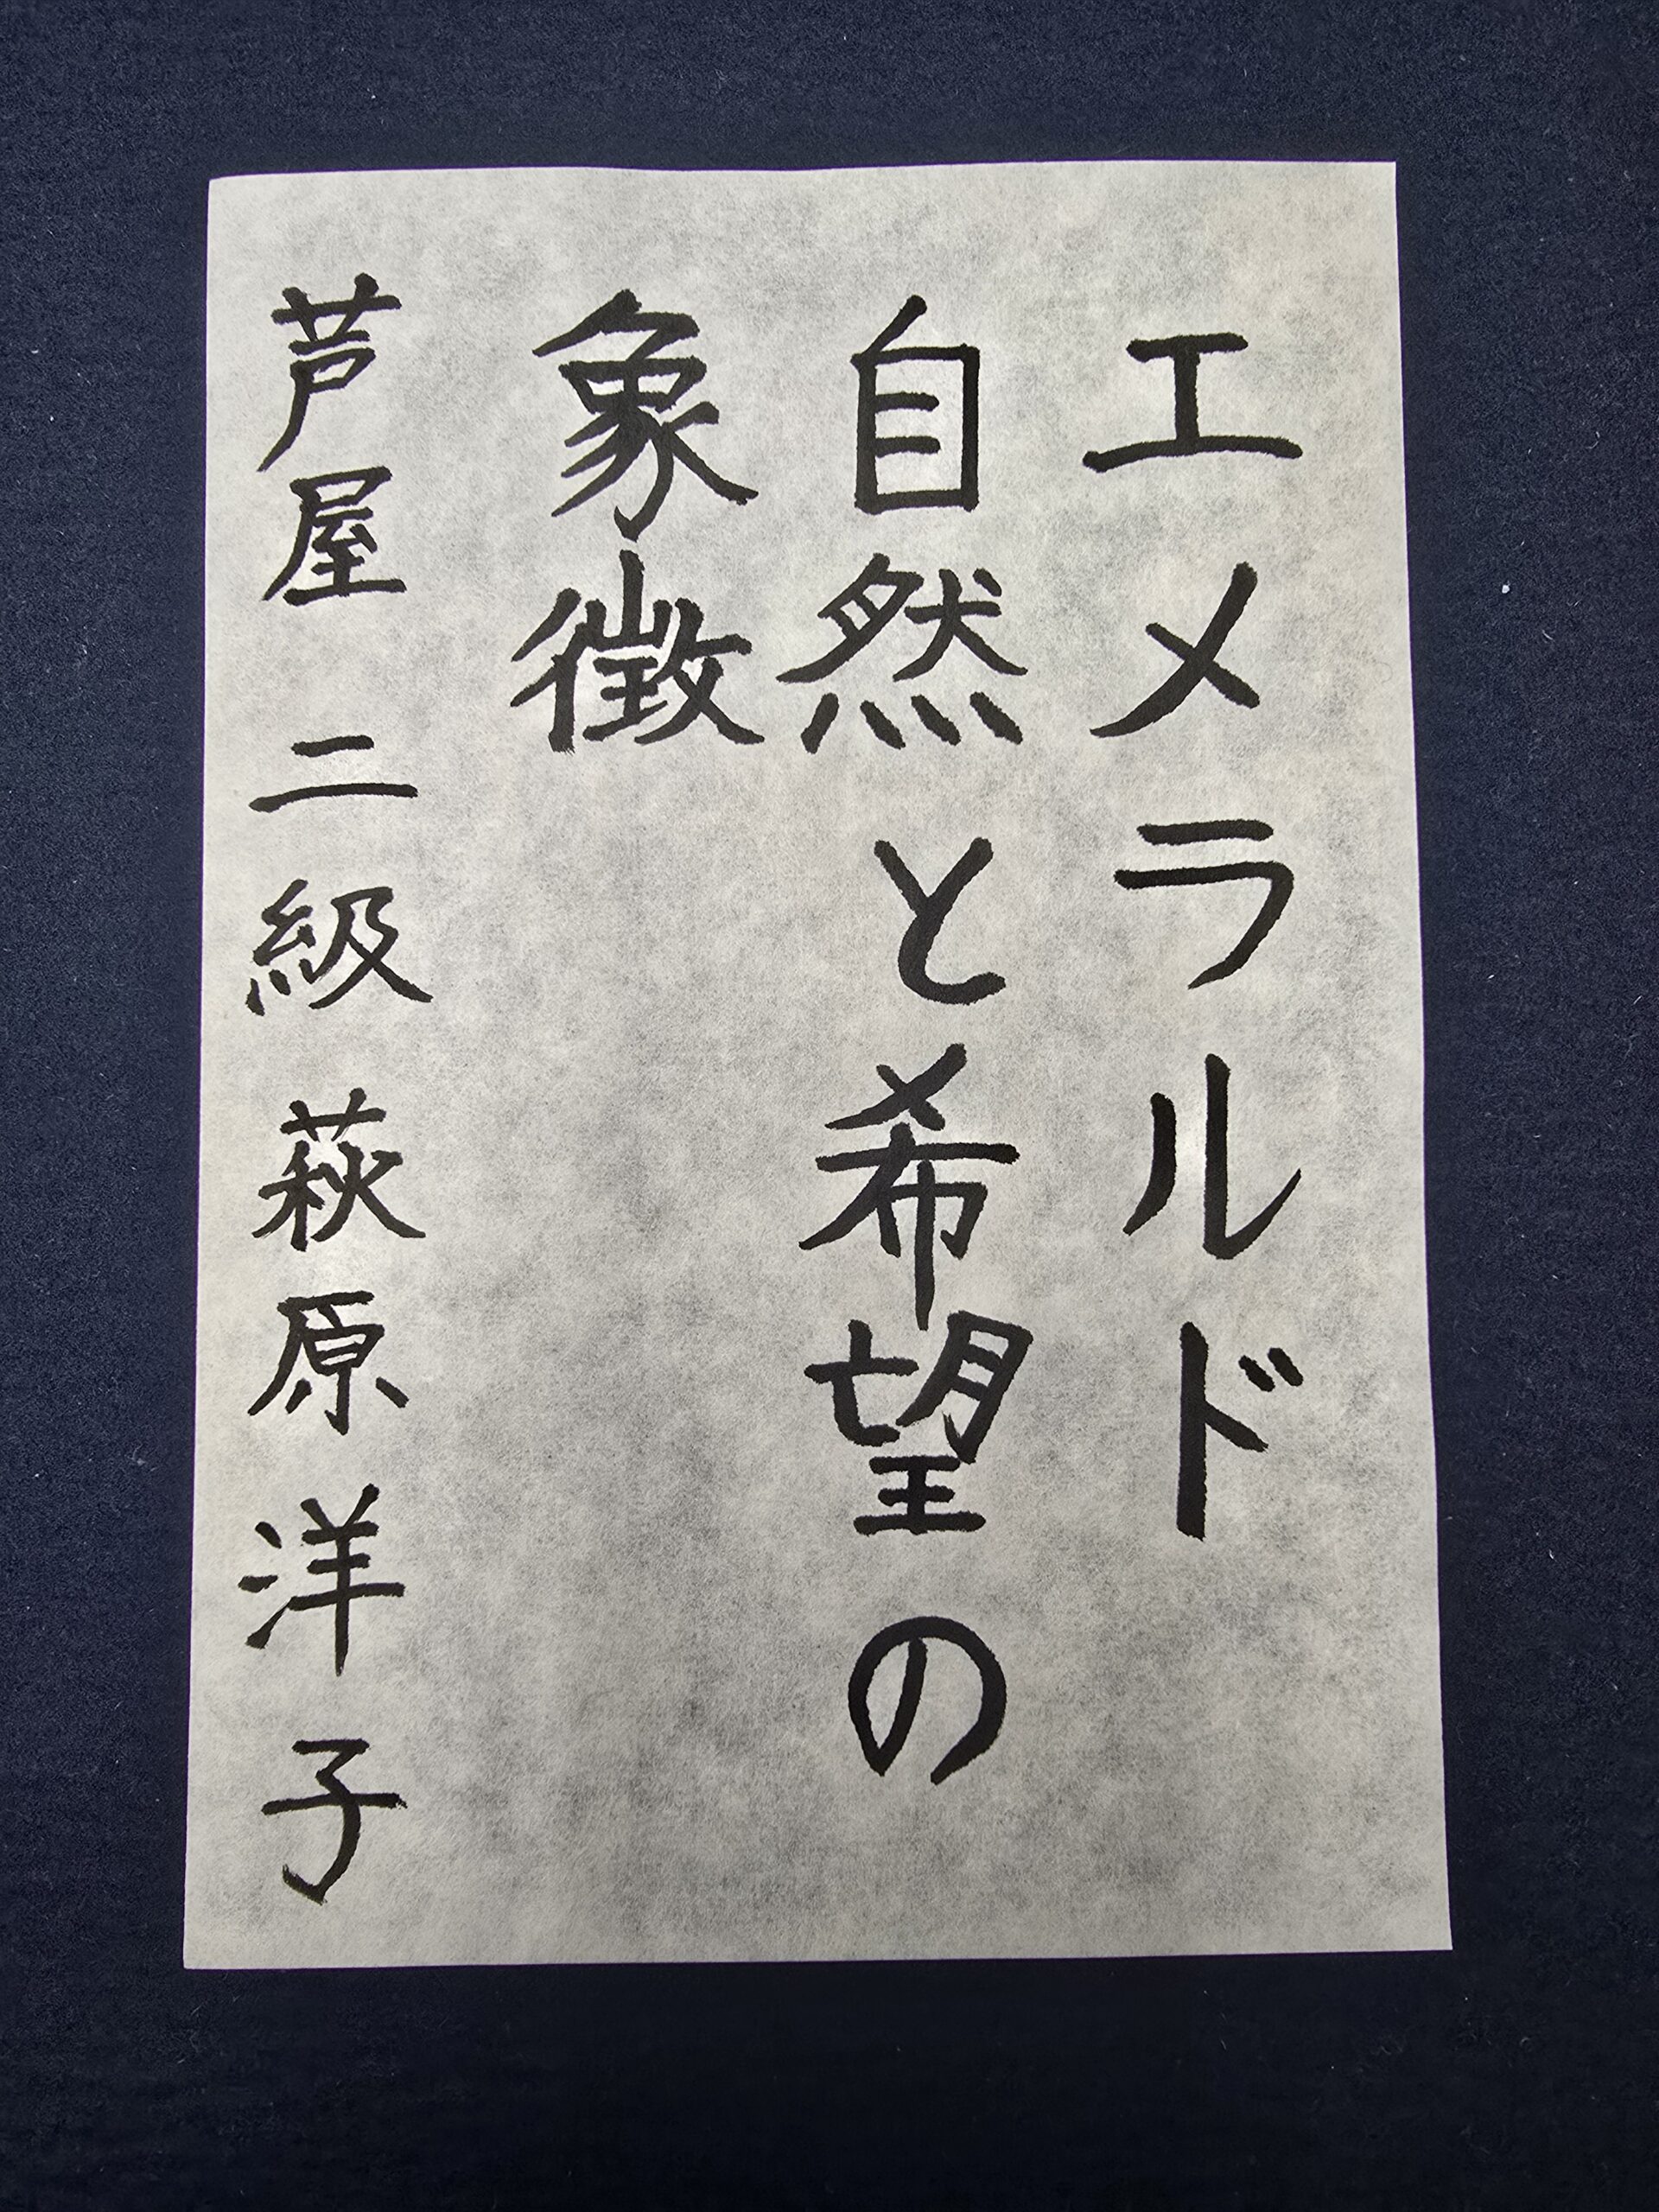 エメラルド
自然と希望の
象徴
芦屋 二級 萩原洋子